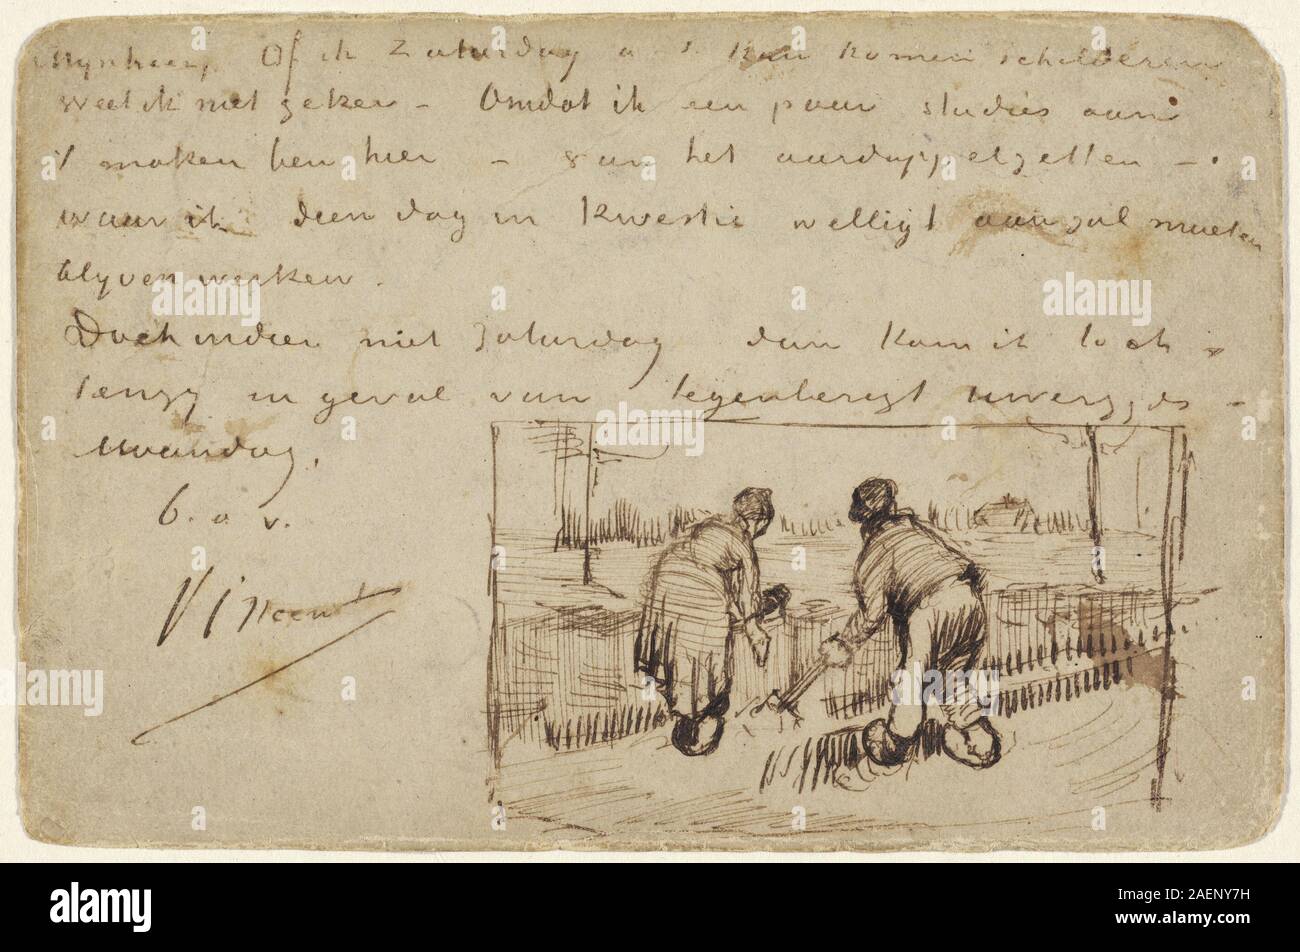 Mynheer, Of ik Zaturdag a s. kan komen schilderen
weet ik niet zeker – Omdat ik een paar studies aan
't maken ben hier – van het aardappelzetten –
waar ik dien dag in kwestie welligt aan zal moeten
blyven werken.
Doch indien niet Zaturdag dan kom ik toch –
tenzy in geval van tegenberigt uwerzyds –
Maandag.
b. a. v.
Vincent
alamy
Image ID: 2AENY7H
www.alamy.com